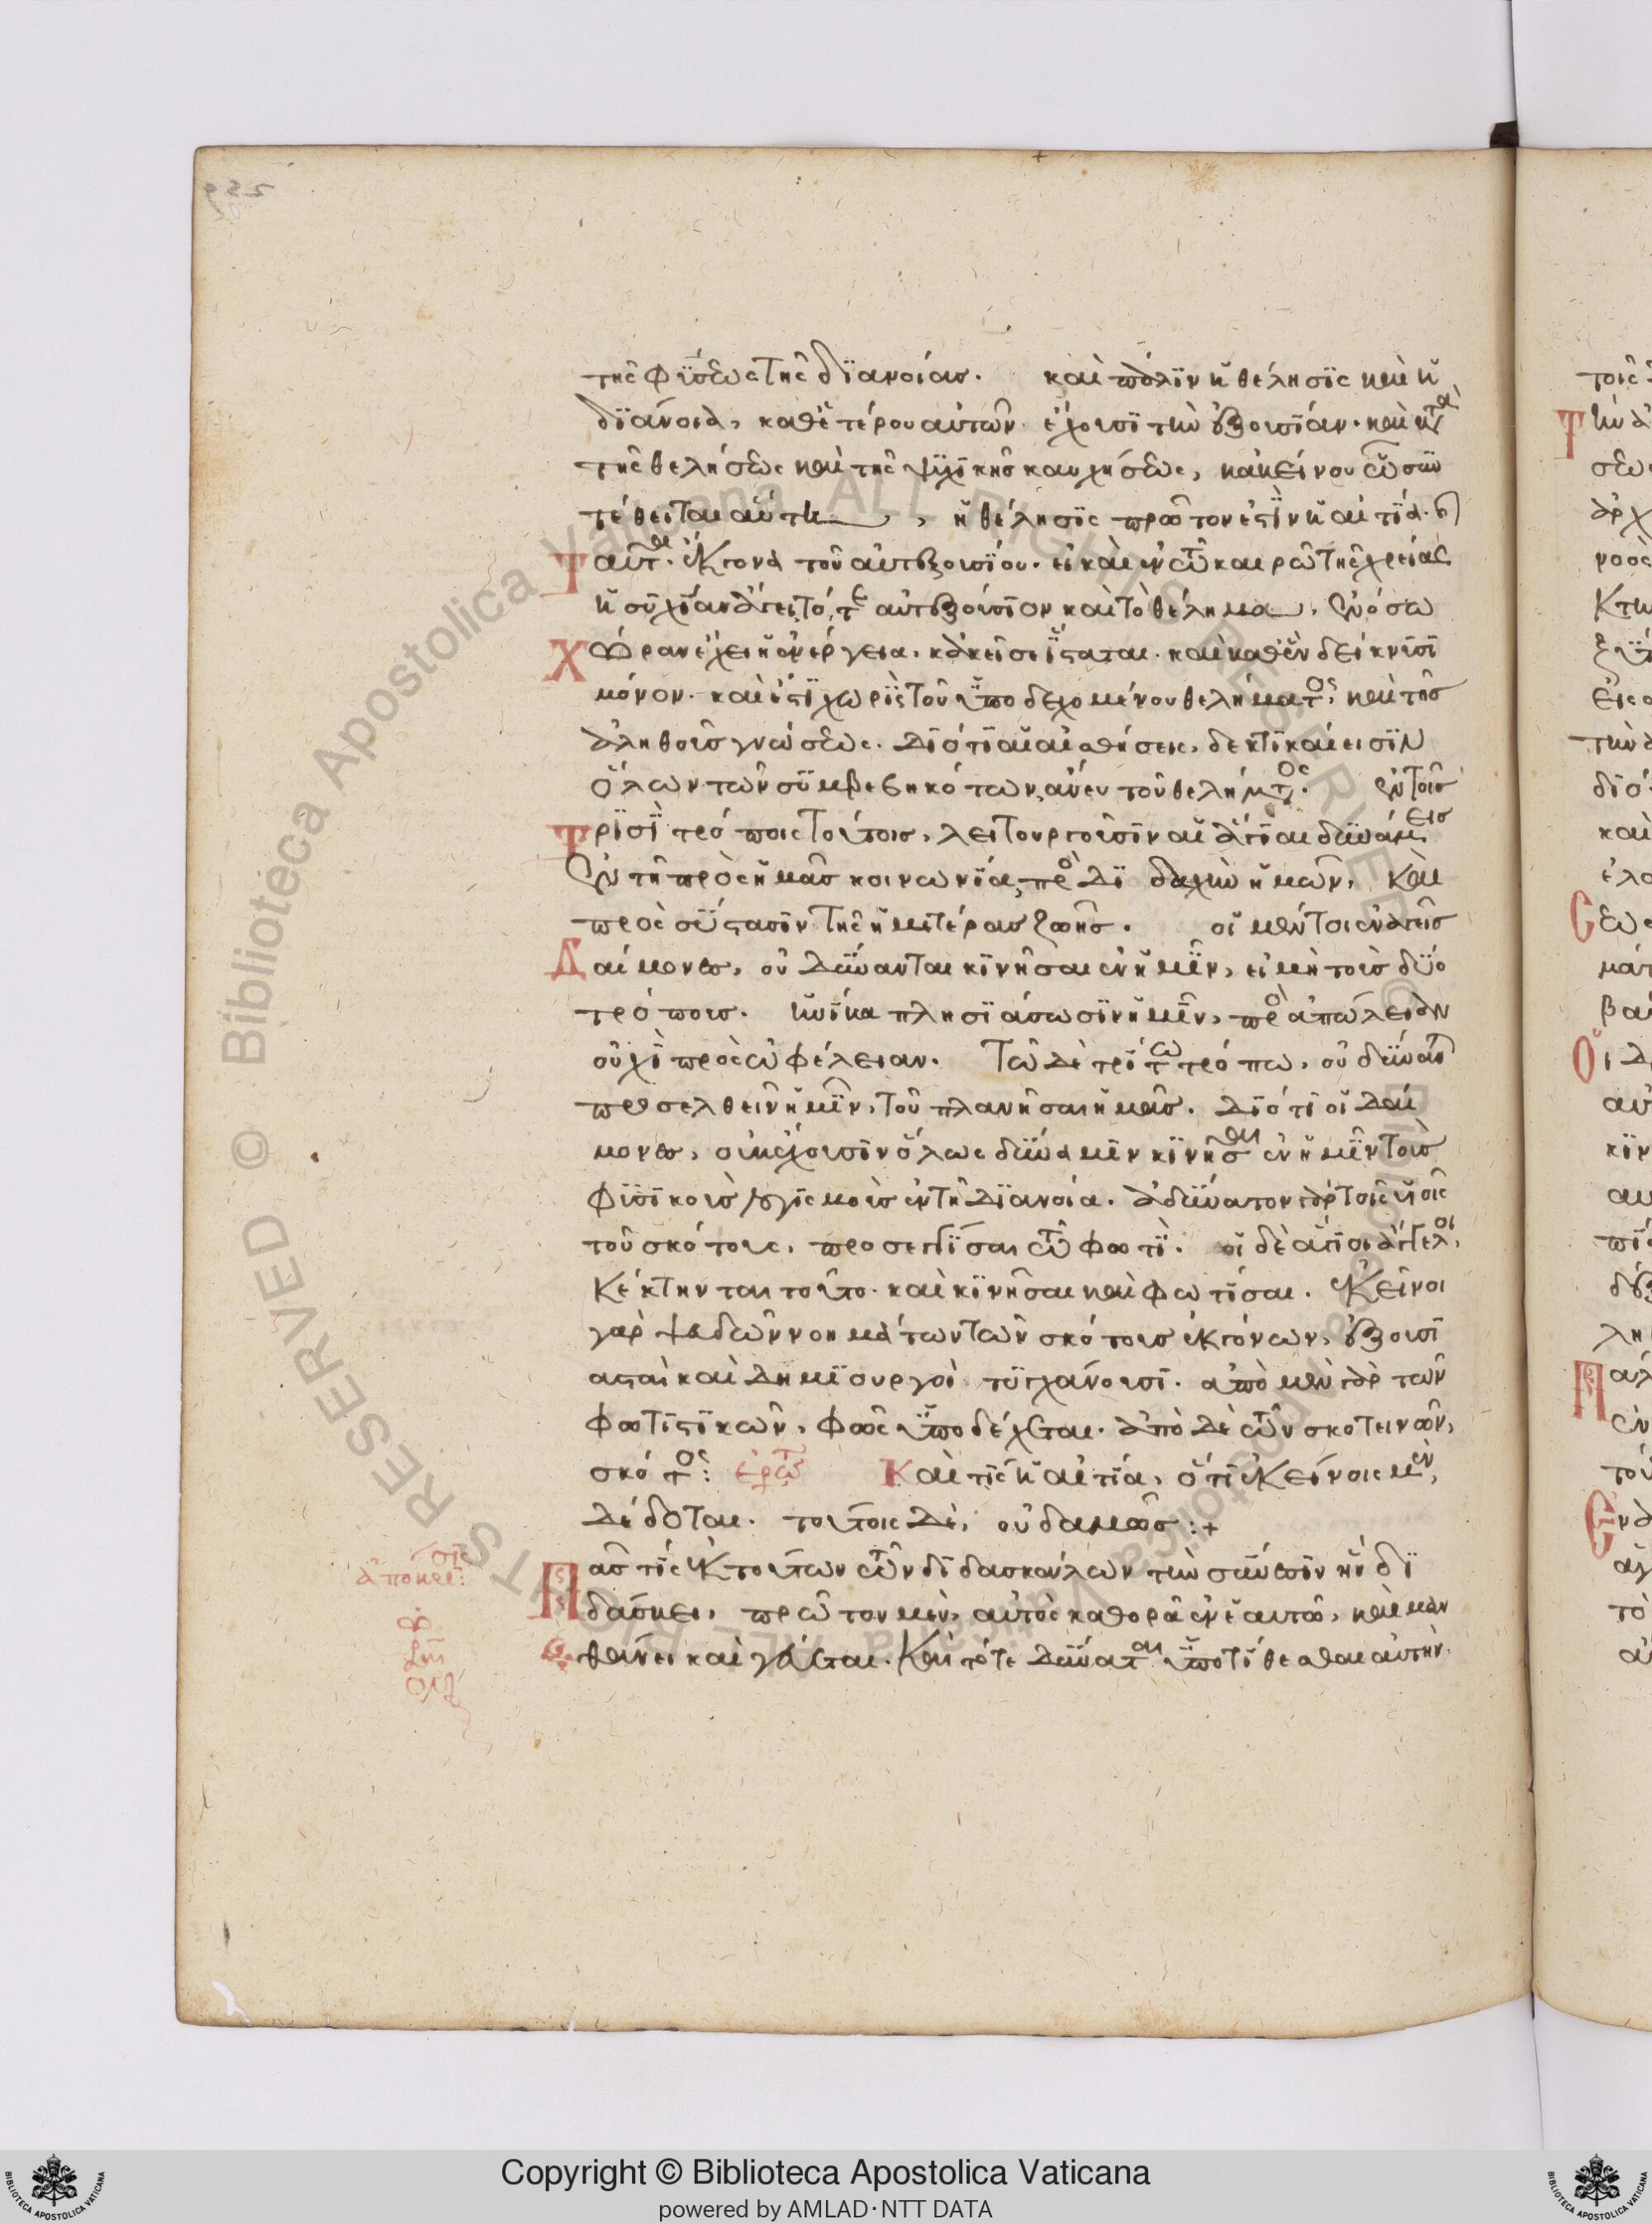 τῆς φύσεως τῆς διανοίας. καὶ πάλιν ἡ θέλησις καὶ ἡ
διάνοια, καθ' ἑτέρου αὐτῶν ἔχουσι τὴν ἐξουσίαν. καὶ
τῆς θελήσεως καὶ τῆς ψυχικῆς καυχήσεως, κἀκείνου
τέθειται αὕτη, ἡ θέλησις πρῶτον ἐστὶν ἡ αἰτία.
ταῦτα ἔκγονα τοῦ αὐτεξουσίου. εἰ καὶ ἐν τῷ καιρῷ τῆς χρείας
ἡσυχίαν ἄγει τό τε αὐτεξούσιον καὶ τὸ θέλημα, ἐν ὅσω
χώραν ἔχει ἡ ἐνέργεια. κἀκεῖσε ἵσταται. καὶ καθ' ἓν δείκνυσι
μόνον. καὶ ἔστι χωρὶς τοῦ ὑποδεχομένου θελήματος, καὶ τῆς
ἀληθοῦς γνώσεως. διότι αἱ αἰσθήσεις, δεκτικαί εἰσιν
ὅλων τῶν συμβεβηκότων, ἄνευ τοῦ θελήματος. ἐν τοῖς
τρισὶ τρόποις τούτοις, λειτουργοῦσιν αἱ ἅγιαι δυνάμεις
ἐν τῇ πρὸς ἡμᾶς κοινωνία, πρὸς διδαχὴν ἡμῶν, καὶ
πρὸς σύστασιν τῆς ἡμετέρας ζωῆς. οἱ μέντοι ἐναγεῖς
δαίμονες, οὐ δύνανται κινῆσαι ἐν ἡμῖν, εἰ μὴ τοῖς δύο
τρόποις. ἡνίκα πλησιάσωσιν ἡμῖν, πρὸς ἀπώλειαν
οὐχὶ πρὸς ὠφέλειαν. Τῷ δὲ τρίτω τρόπω, οὐ δύναν
προσελθεῖν ἡμῖν, τοῦ πλανῆσαι ἡμᾶς. διότι οἱ δαί
μονες, οὐκ ἔχουσιν ὅλως δύναμιν κινῆσαι ἐν ἡμῖν τοὺς
φυσικοὺς λογισμοὺς ἐν τῇ διανοία. ἀδύνατον γὰρ τοῖς υἱοῖς
τοῦ σκότους, προσεγγίσαι τῷ φωτί. οἱ δὲ ἅγιοι ἄγγελοι,
κέκτηνται τοῦτο. καὶ κινῆσαι καὶ φωτίσαι. Ἐκεῖνοι
γὰρ ψευδῶν νοημάτων τῶν σκότους ἐκγόνων, ἐξουσι
ασταὶ καὶ δημιουργοὶ τυγχάνουσι. ἀπὸ μὲν γὰρ τῶν
φωτιστικῶν, φῶς ὑποδέχεται. ἀπὸ δὲ τῶν σκοτεινῶν,
σκότος: ἐρώτ Καὶ τίς ἡ αἰτία, ὅτι ἐκείνοις μὲν,
δέδοται. τούτοις δὲ, οὐδαμῶς :+
ἀπόκρισις:
Πᾶς τίς ἐκ τούτων τῶν διδασκάλων τὴν σύνεσιν ἣν δι
δάσκει, πρῶτον μὲν, αὐτὸς καθορᾶ ἐν ἑαυτῶ, καὶ μαν
θάνει καὶ γεύεται. Καὶ τότε δύναται ὑποτίθεσθαι αὐτὴν.